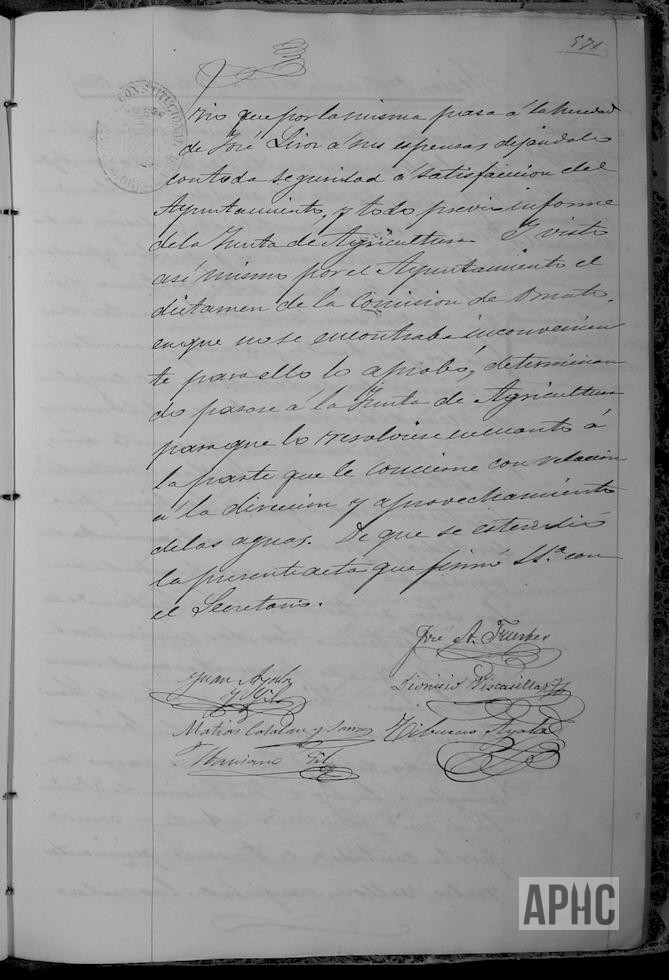 571
CONSTITUCIONAL
rio que por la misma pasa á la heredad
de José Liroz á sus espensas, dejándola
con toda seguridad á satisfaccion del
Ayuntamiento, y todo previo informe
de la Junta de Agricultura. Y visto
asi mismo por el Ayuntamiento el
dictamen de la Comision de Ornato,
en que no se encontraba inconvenien
te para ello lo aprobó, determinan
do pasase á la Junta de Agricultura
para que lo resolviese en cuanto á
la parte que le concierne con relacion
á la direccion y aprovechamiento
de las aguas. De que se estendió
la presente acta que firmó S.ª con
el Secretario.
José A. Fuertes
Juan Ayala
y Gil
Dionisio Biscasillas
Matias Catalan y Sanz
Tiburcio Ayala
Mariano Gil
APHC